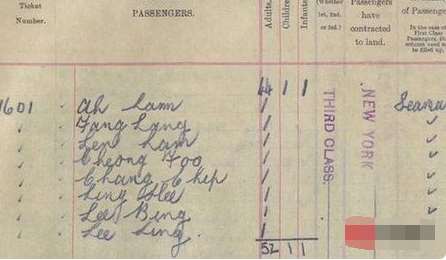 Ticket Number. PASSENGERS. Adults. Children Infants (Whether 1st, 2nd, or 3rd.) Passengers have contracted to land. of Passenge
In the case of First Class Passengers, th
be filled up.
44 1 1
1601 Ah Lam Seama
Fang Lang
Len Lam
Cheong Foo
Chang Chip
Ling Hee
Lee Bing
Lee Ling.
THIRD CLASS.
NEW YORK
52 1 1